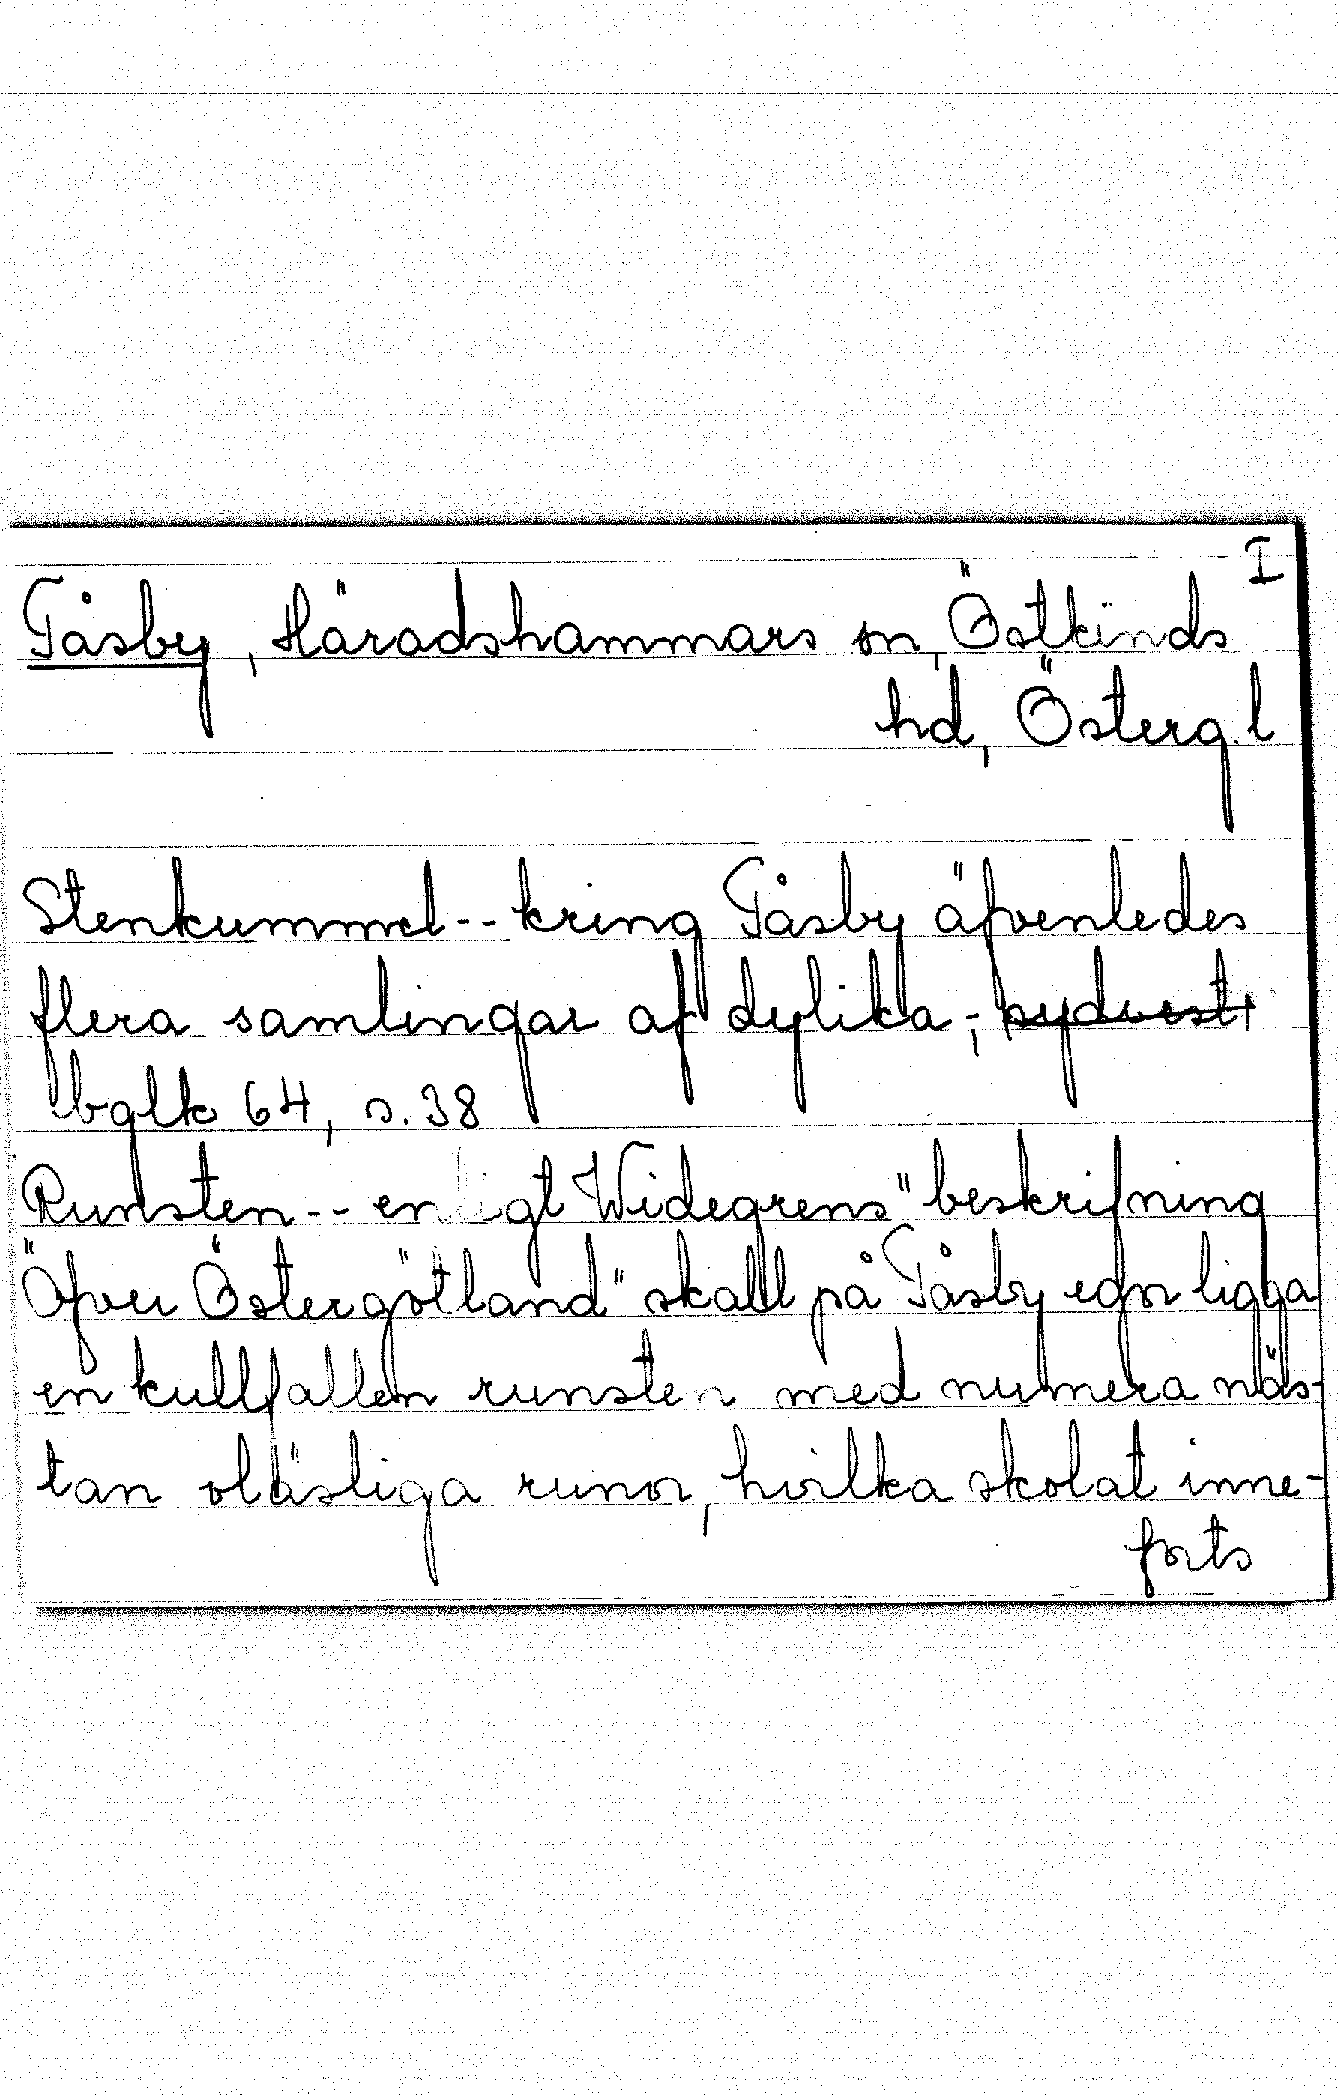 I
Tåsby, Häradshammars sn, Östkinds
hd, Österg.l
Stenkummel -- kring Tåsby äfvenledes
flera samlingar af dylika; sydvest
bglk 64, s. 38
Runsten -- enligt Widegrens "beskrifning
Öfver Östergötland" skall på Tåsby egor ligga
en kullfallen runsten med numera näs-
tan oläsliga runor, hvilka skolat inne-
forts